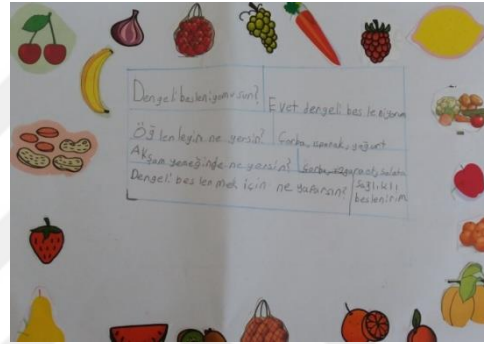 Dengeli besleniyor musun? Evet dengeli besleniyorum
Öğlenleyin ne yersin? Çorba, ıspanak, yoğurt
Akşam yemeğinde ne yersin? Çorba, salata
Dengeli beslenmek için ne yaparsın? Sağlıklı
beslenirim